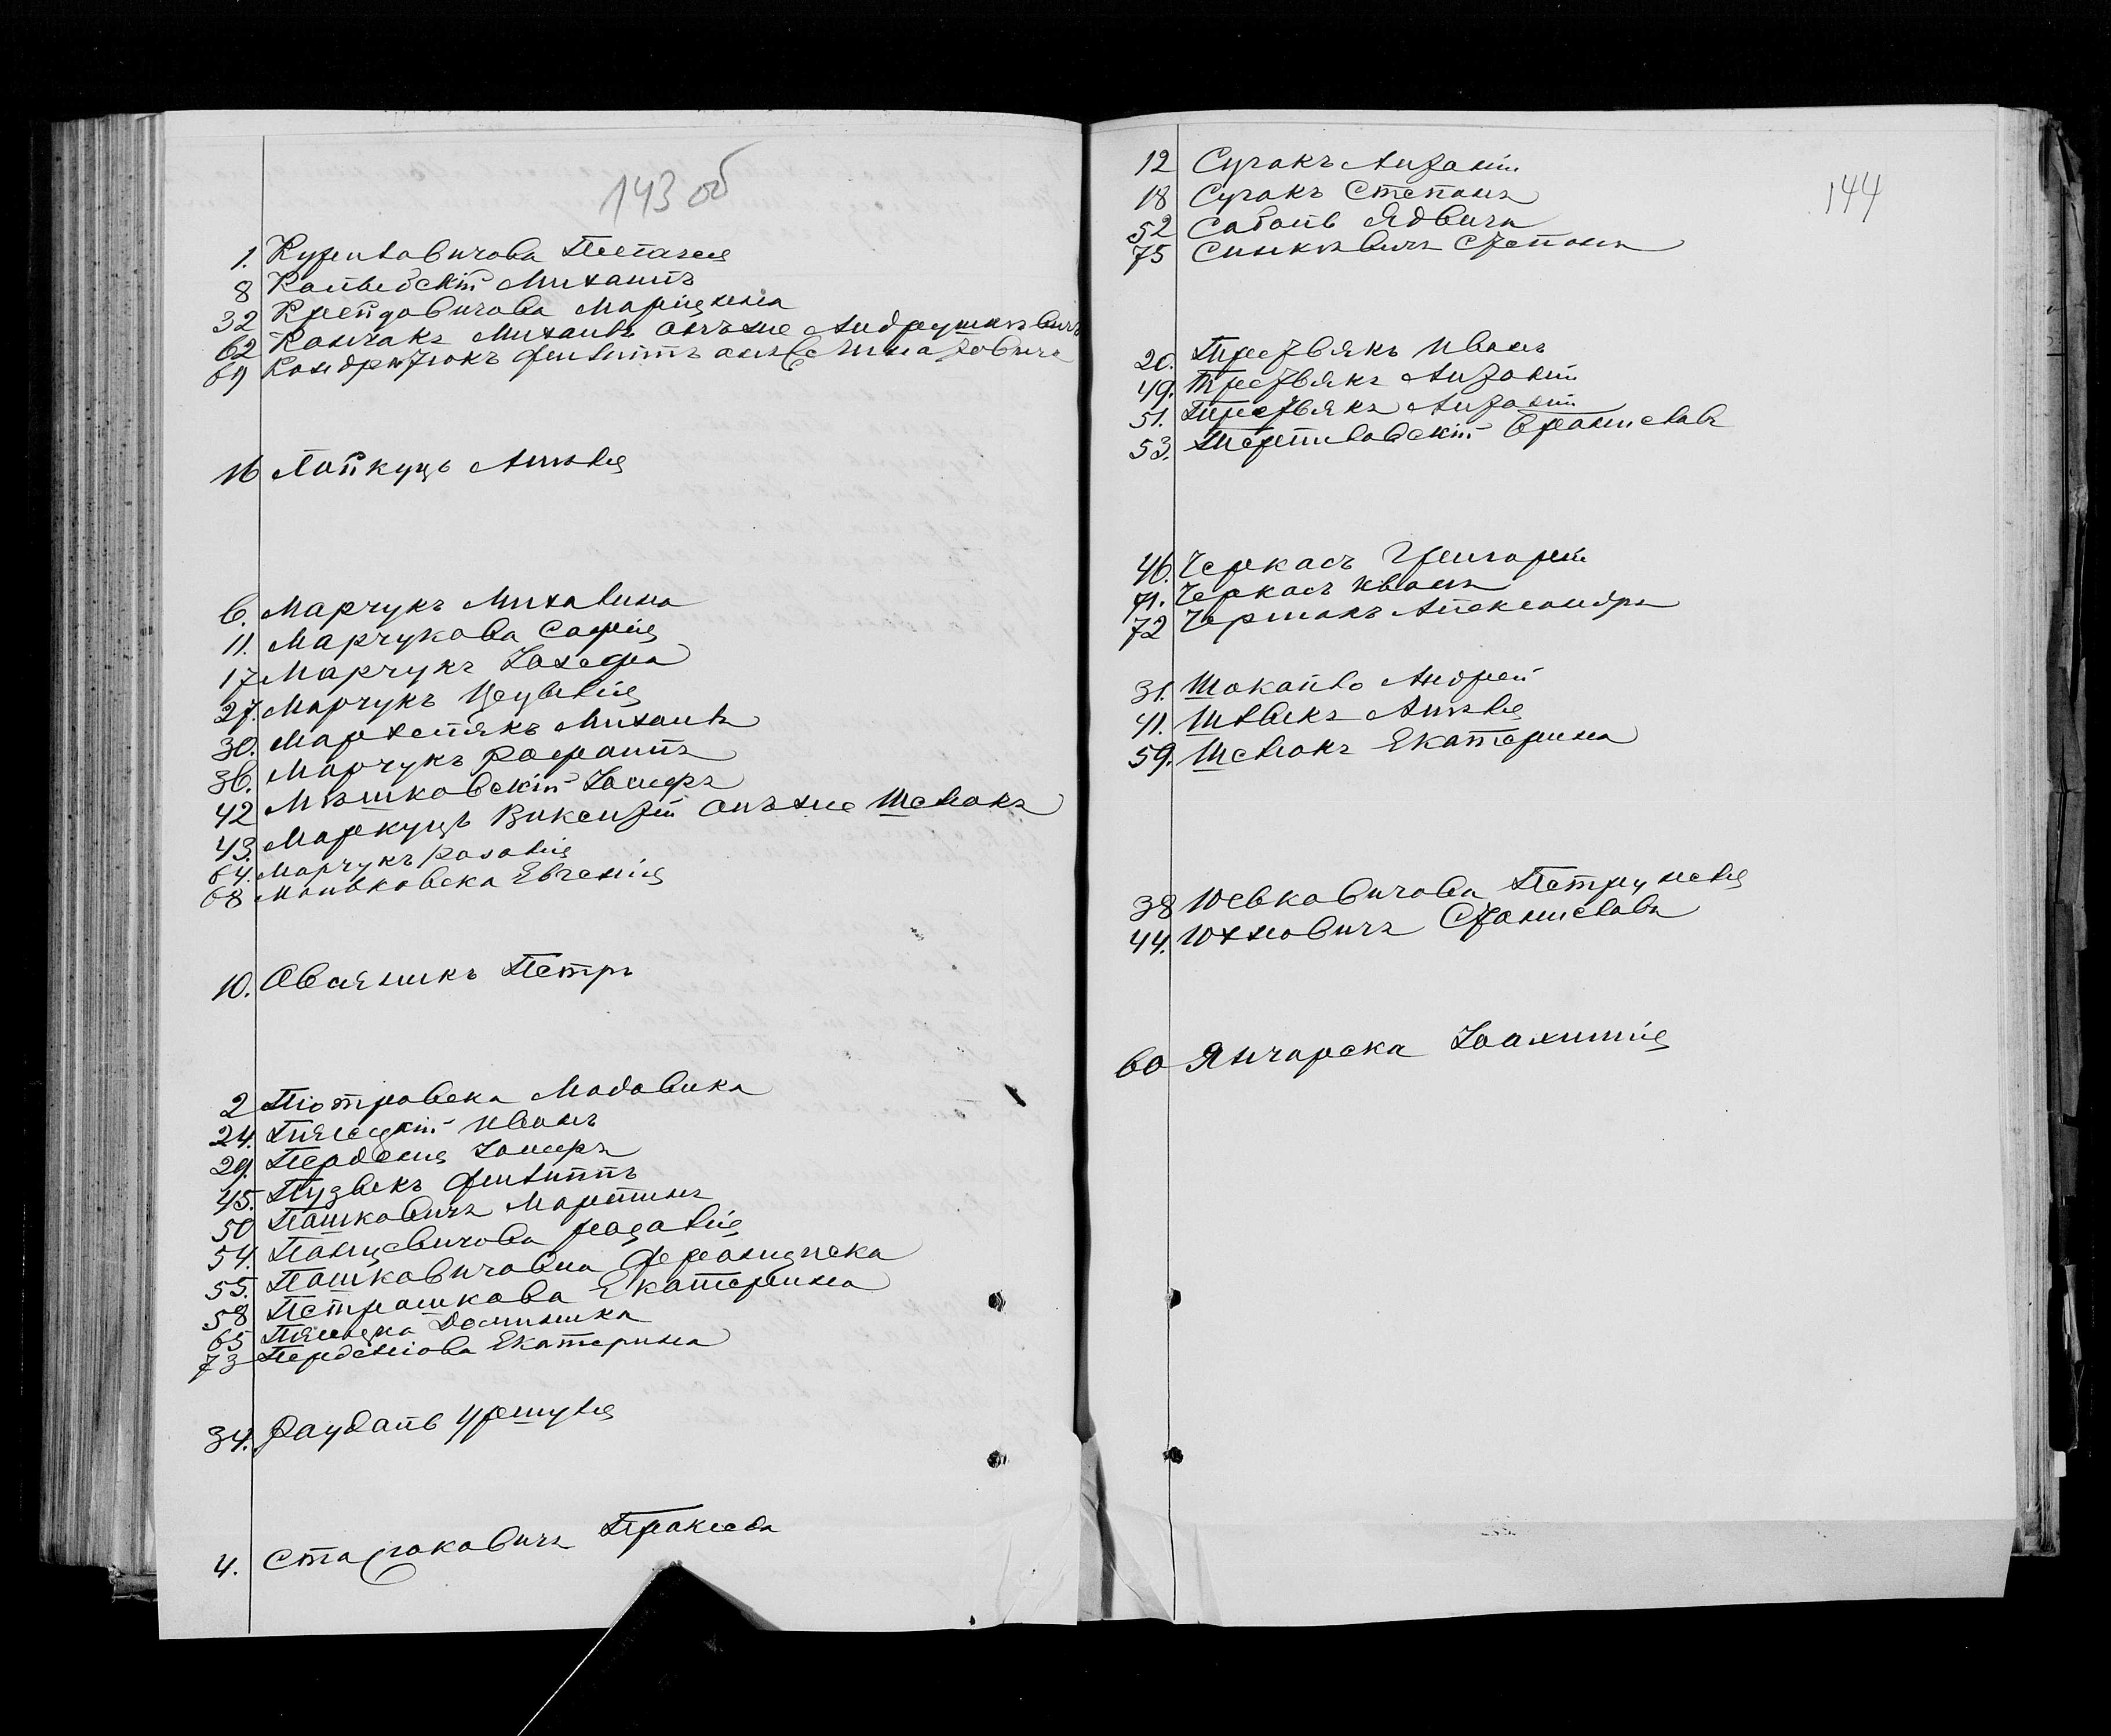 143 об
1. Куриловичова Пелагея
8 Копыбскій Михаилъ
32 Крейдовичова Марцелла
62 Кончакъ Михаилъ онъ же Андрушкевичъ
69 Кондратюкъ Филиппъ онъ же Игнатовичъ
16 Лойкуць Амелія
6. Марчукъ Михалина
11. Марчукова Софія
17 Марчукъ Іозефа
27. Марчукъ Цецилія
30. Мархелякъ Михаилъ
36. Марчукъ Рафаилъ
42 Мѣшковскій Іосифъ
43. Маркуць Викентій онъ же Шелюкъ
64. Марчукъ Розалія
68 Маньковска Евгенія
10. Овсяникъ Петръ
2 Піотровска Людовика
24. Пясецкій Иванъ
29. Перденя Іосифъ
45. Пузвекъ Филиппъ
50 Пашковичъ Мартинъ
54. Панцевичова Розалія
55. Пашковичовна Франциска
58 Петрашкова Екатерина
65 Пясецка Доминика
73 Перденіова Екатерина
34. Раубаль Уршуля
4. Старжаковичъ Пракседа
144
12 Сугакъ Антоній
18 Сугакъ Степанъ
52 Соболь Ядвига
75 Синкевичъ Степанъ
20. Третьякъ Иванъ
49. Третьякъ Антоній
51. Третьякъ Антоній
53. Терпиловскій Брониславъ
46. Черкасъ Григорій
71. Черкасъ Иванъ
72 Чермакъ Александра
31. Шокайло Андрей
41. Шлыкъ Амелія
59. Шелюкъ Екатерина
38 Юськовичова Петрунеля
44. Юхновичъ Станиславъ
60 Янчарска Іоахимія